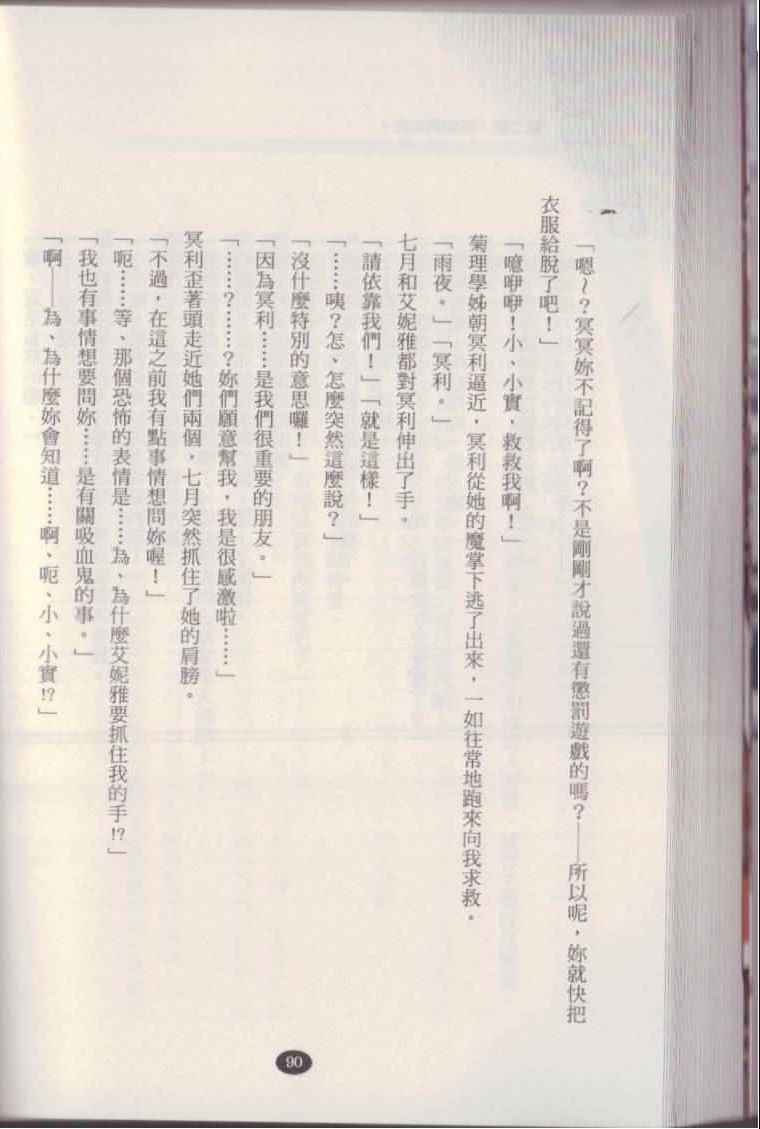 「嗯～？冥冥妳不記得了啊？不是剛剛才說過還有懲罰遊戲的嗎？——所以呢，妳就快把
衣服給脫了吧！」
「噫咿咿！小、小實，救救我啊！」
菊理學姊朝冥利逼近，冥利從她的魔掌下逃了出來，一如往常地跑來向我求救。
「雨夜。」「冥利。」
七月和艾妮雅都對冥利伸出了手。
「請依靠我們！」「就是這樣！」
「……咦？怎、怎麼突然這麼說？」
「沒什麼特別的意思囉！」
「因為冥利……是我們很重要的朋友。」
「……？……？妳們願意幫我，我是很感激啦……」
冥利歪著頭走近她們兩個，七月突然抓住了她的肩膀。
「不過，在這之前我有點事情想問妳喔！」
「呃……等、那個恐怖的表情是……為、為什麼艾妮雅要抓住我的手!?」
「我也有事情想要問妳……是有關吸血鬼的事。」
「啊——為、為什麼妳會知道……啊、呃、小、小實!?」
90